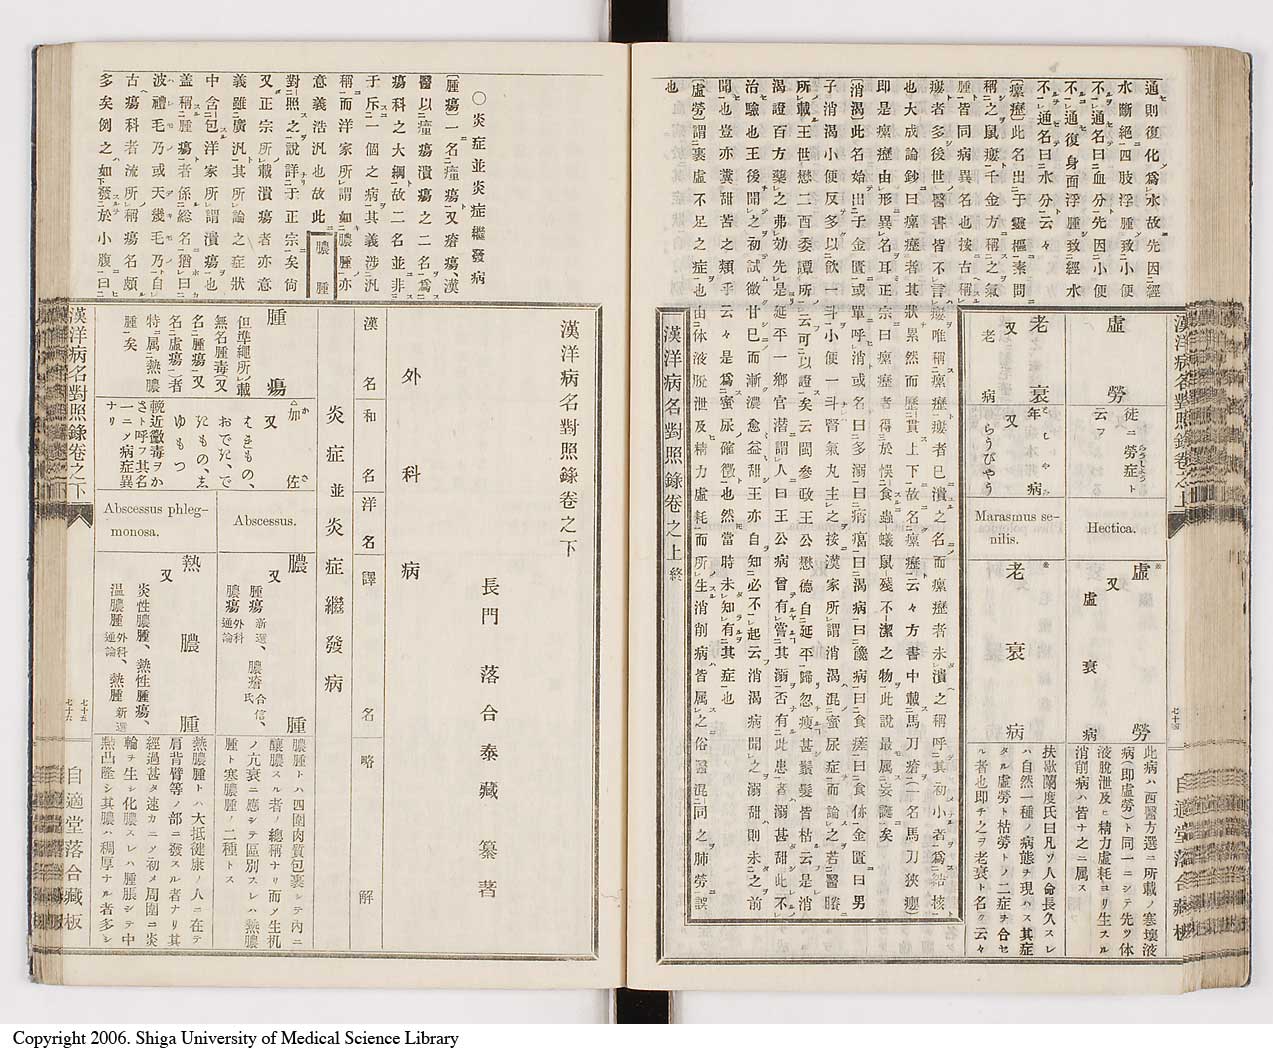 通則復化爲水故ニ先因經
水斷絕四肢浮腫致小便
不通名曰血分先因小便
不通復身面浮腫致經水
不通名曰水分云々
〔瘰癧〕此名出于靈樞素問
稱之鼠瘻千金方稱之氣
腫皆同病異名也按古稱
瘻者多後世醫書皆不言瘻唯稱瘰癧瘻者已潰之名而瘰癧者未潰之稱呼其初小者爲結核
也大成論鈔曰瘰癧者其狀累然而歷貫上下故名瘰癧云々方書中載馬刀瘡(一名馬刀狹癭)
即是瘰癧由形異名耳正宗曰瘰癧者得於悞食蟲蟻鼠殘不潔之物此說最屬妄誕矣
〔消渴〕此名始出于金匱或單呼消或名曰多溺曰痟𤸎曰渴病曰饞病曰食㾨曰食㑊金匱曰男
子消渴小便反多以飲一斗小便一斗腎氣丸主之按漢家所謂消渴混蜜尿症而論之若醫賸
所載王世懋二百委譚所云可以證矣云閩參政王公懋德自延平歸忽瘦甚鬚髮皆枯云是消
渴證百方藥之弗効先是延平一鄉官潛謂人曰王公病曾有嘗其溺否有此患者溺甚甜此不
治驗也王後聞之初試微甘已而漸濃愈益甜王亦自知必不起云消渴病聞之溺甜則未之前
聞也豈亦糞甜苦之類乎云々是爲蜜尿確徵也然當時未知有其症也
〔虛勞〕謂裹虛不足之症也由体液脫泄及精力虛耗而所生消削病皆屬之俗醫混同之肺勞誤
也
虛勞
徒ニ勞症ト云フ
らうしょう
Hectica.
虛勞
又
虛衰病
此病ハ西醫方選ニ所載ノ寒壞液
病(即虛勞)ト同一ニシテ先ツ体
液脫泄及ヒ精力虛耗ヨリ生スル
消削病ハ皆ナ之ニ属ス
老衰
又
老病
年しやみ病
又
らうびやう
Marasmus se-
nilis.
老衰病
扶歇蘭度氏曰凡ソ人命長久スレ
ハ自然一種ノ病態ヲ現ハス其症
タル虛勞ト枯勞トノ二症ヲ合セ
ル者也即チ之ヲ老衰ト名ク云々
漢洋病名對照錄卷之上終
漢洋病名對照錄卷之上
七十四
自適堂落合藏板
漢洋病名對照錄卷之下
長門 落合泰藏 纂著
外科病
漢名
和名
洋名
譯名
略解
炎症並炎症繼發病
腫瘍
但準繩所載
無名腫毒又
名腫瘍又
名虛瘍者
特ニ属熱膿
腫矣
加佐
かさ
又
はれもの、
おでき、で
きもの、ゑ
ゆもつ
輓近黴毒ヲか
さト呼フ其名
一ニノ病症異
ナリ
Abscessus.
膿腫
又
腫瘍新選、膿瘡合信氏、
膿瘍外科通論
膿腫トハ四圍肉質包裹シテ內ニ
釀膿スル者ノ總稱ナリ而ノ生机
ノ亢衰ニ應シテ區別スレハ熱膿
腫ト寒膿腫ノ二種トス
Abscessus phleg-
monosa.
熱膿腫
又
炎性膿腫、熱性腫瘍、
溫膿腫外科通論、熱腫新選
熱膿腫トハ大抵健康ノ人ニ在テ
肩背臂等ノ部ニ發スル者ナリ其
經過甚タ速カニノ初メ周圍ニ炎
輪ヲ生シ化膿スレハ腫脹シテ中
央凸隆シ其膿ハ稠厚ナル者多シ
○炎症並炎症繼發病
〔腫瘍〕一名瘇瘍又瘡瘍、漢
醫以瘇瘍潰瘍之二名爲
瘍科之大綱故二名並非
于斥一個之病其義涉汎
稱而洋家所謂如膿腫亦
意義浩汎也故此膿腫
對照之說詳于正宗矣尙
又正宗所載潰瘍者亦意
義雖廣汎其所論之症狀
中含包洋家所謂潰瘍也
盖稱腫瘍者係総名猶曰
波禮毛乃或天幾毛乃自
古瘍科者流所稱瘍名頗
多矣例之如發於小腹曰
漢洋病名對照錄卷之下
七十五
七十六
自適堂落合藏板
Copyright 2006. Shiga University of Medical Science Library